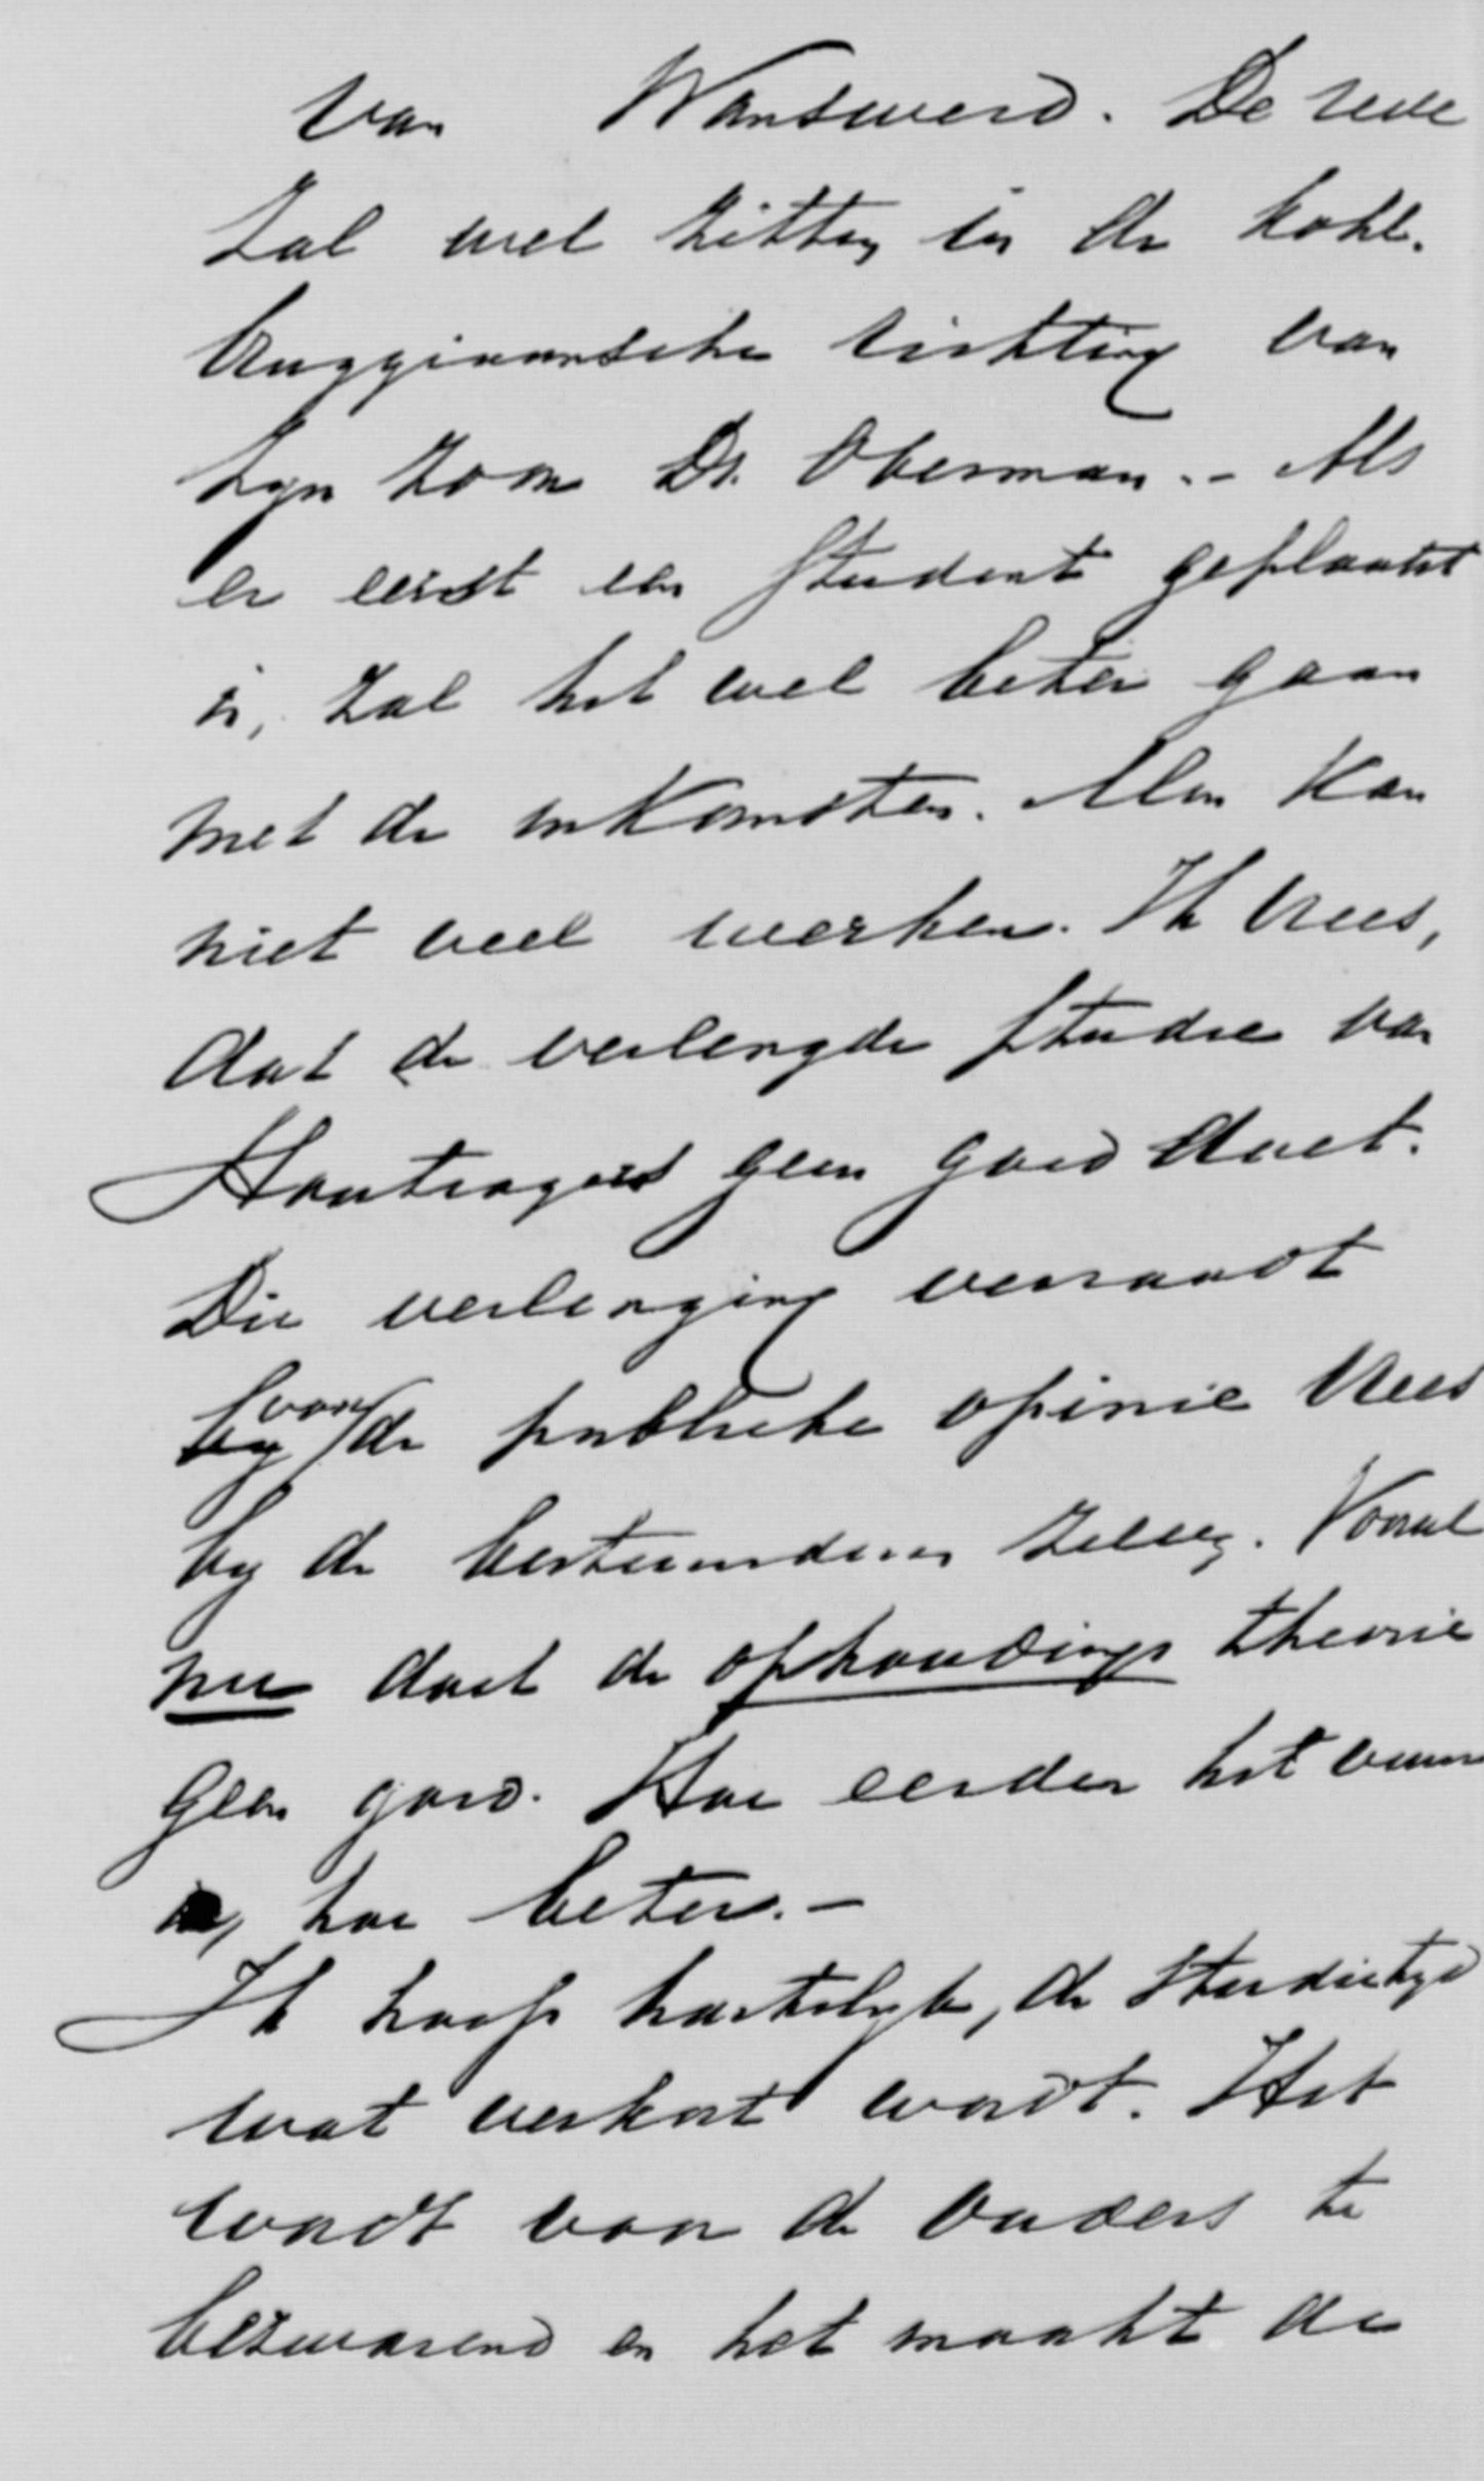 van Wanswerd. De rede
zal wel zitten in de Kohl.
bruggiaansche richting van
zyn zoon Dr. Oberman. - Als
er eerst een student geplaatst
is, zal het wel beter gaan
met de inkomsten. Men kan
niet veel werken. Ik vrees,
dat de verlengde studie van
Houtzagers geen goed doet.
Die verlenging verraadt
voor de publieke opinie vrees
by de bestuurderen zelve. Vooral
nu doet de ophoudings theorie
geen goed. Hoe eerder het
is, hoe beter. -
Ik hoop hartelyk, de studietyd
wat verkort wordt. Het
wordt voor de ouders te
bezwarend en het maakt de